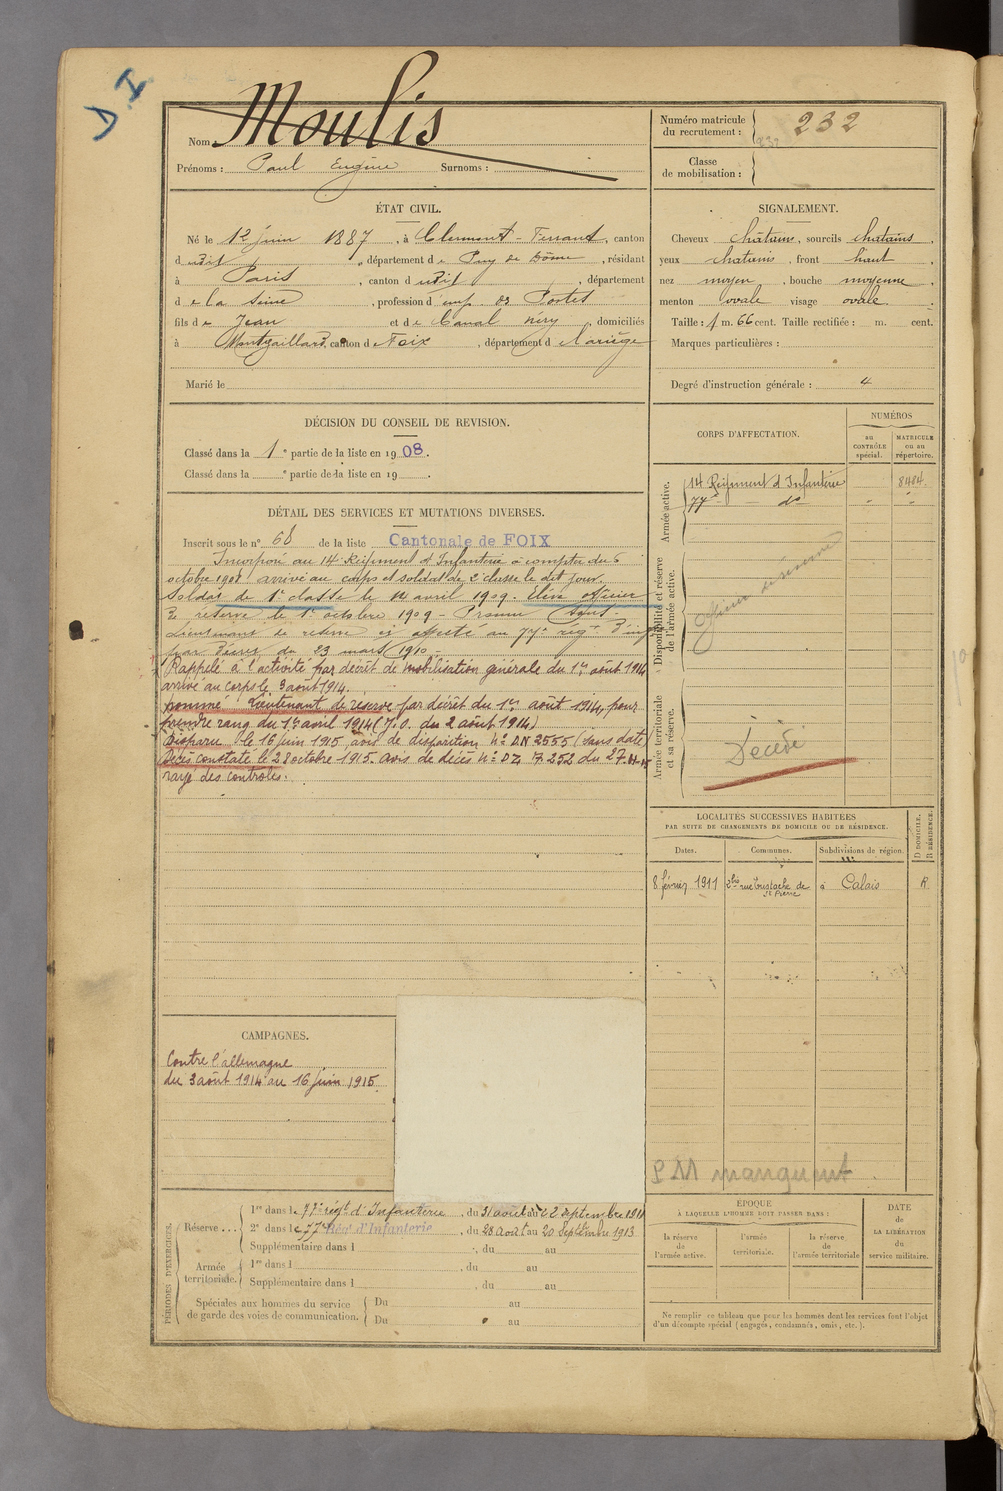 D.I.
Nom Moulis
Prénoms : Paul Eugène Surnoms :
Numéro matricule
du recrutement : 232
232
Classe
de mobilisation :
ÉTAT CIVIL.
Né le 12 juin 1887, à Clermont-Ferrand, canton
d udit, département de Puy de Dôme, résidant
à Paris, canton d udit, département
de la Seine, profession d'emp. des Postes
fils de Jean et de Canal Néry, domiciliés
à Montgaillard, canton de Foix, département de l'ariège
Marié le
SIGNALEMENT.
Cheveux châtains, sourcils châtains,
yeux chatains, front haut,
nez moyen, bouche moyenne,
menton ovale visage ovale.
Taille : 1 m. 66 cent. Taille rectifiée : m. cent.
Marques particulières :
Degré d'instruction générale : 4
DÉCISION DU CONSEIL DE REVISION.
Classé dans la 1e partie de la liste en 1908.
Classé dans la e partie de la liste en 19 .
DÉTAIL DES SERVICES ET MUTATIONS DIVERSES.
Inscrit sous le n° 68 de la liste Cantonale de FOIX
Incorporé au 14e Régiment d'Infanterie à compter du 6
octobre 1908 arrivé au corps et soldat de 2e classe le dit jour.
Soldat de 1e classe le 12 avril 1909. Elève officier
de réserve le 1er octobre 1909 - Promu Sous-
Lieutenant de réserve et affecté au 77e régt d'inf
par Décret du 23 mars 1910 -
Rappelé à l'activité par décret de mobilisation générale du 1er août 1914
arrivé au corps le 3 août 1914.
nommé Lieutenant de réserve par décret du 1er août 1914, pour
prendre rang du 1er avril 1914 (J.O. du 2 août 1914)
Disparu le 16 juin 1915 avis de disparition n° D.N 2555 (sans date)
Décès constaté le 28 octobre 1915. avis de décès n° DZ 7.252 du 27-11-15
rayé des contrôles.
CORPS D'AFFECTATION.
NUMÉROS
au
CONTRÔLE
spécial.
MATRICULE
ou au
répertoire.
Armée active.
14 Régiment d'Infanterie 8484.
77e - do - " "
Disponibilité et réserve
de l'armée active.
Officier de réserve
Armée territoriale
et sa réserve.
Décédé
LOCALITÉS SUCCESSIVES HABITÉES
PAR SUITE DE CHANGEMENTS DE DOMICILE OU DE RÉSIDENCE.
Dates. Communes. Subdivisions de région.
D DOMICILE.
R RÉSIDENCE.
8 février 1911 2bis rue Eustache de
St Pierre à Calais R
CAMPAGNES.
Contre l'allemagne
du 3 août 1914 au 16 juin 1915
PM manquent
PÉRIODES D'EXERCICES.
Réserve ...
1re dans le 77e régt d'Infanterie, du 31 août au 22 septembre 1911
2e dans le 77e Régt d'Infanterie, du 28 août au 20 Septembre 1913
Supplémentaire dans l , du au
Armée
territoriale.
1re dans l , du au
Supplémentaire dans l , du au
Spéciales aux hommes du service
de garde des voies de communication.
Du au
Du au
ÉPOQUE
À LAQUELLE L'HOMME DOIT PASSER DANS :
la réserve
de
l'armée active.
l'armée
territoriale.
la réserve
de
l'armée territoriale
DATE
de
LA LIBÉRATION
du
service militaire.
Ne remplir ce tableau que pour les hommes dont les services font l'objet
d'un décompte spécial (engagés, condamnés, omis, etc.).